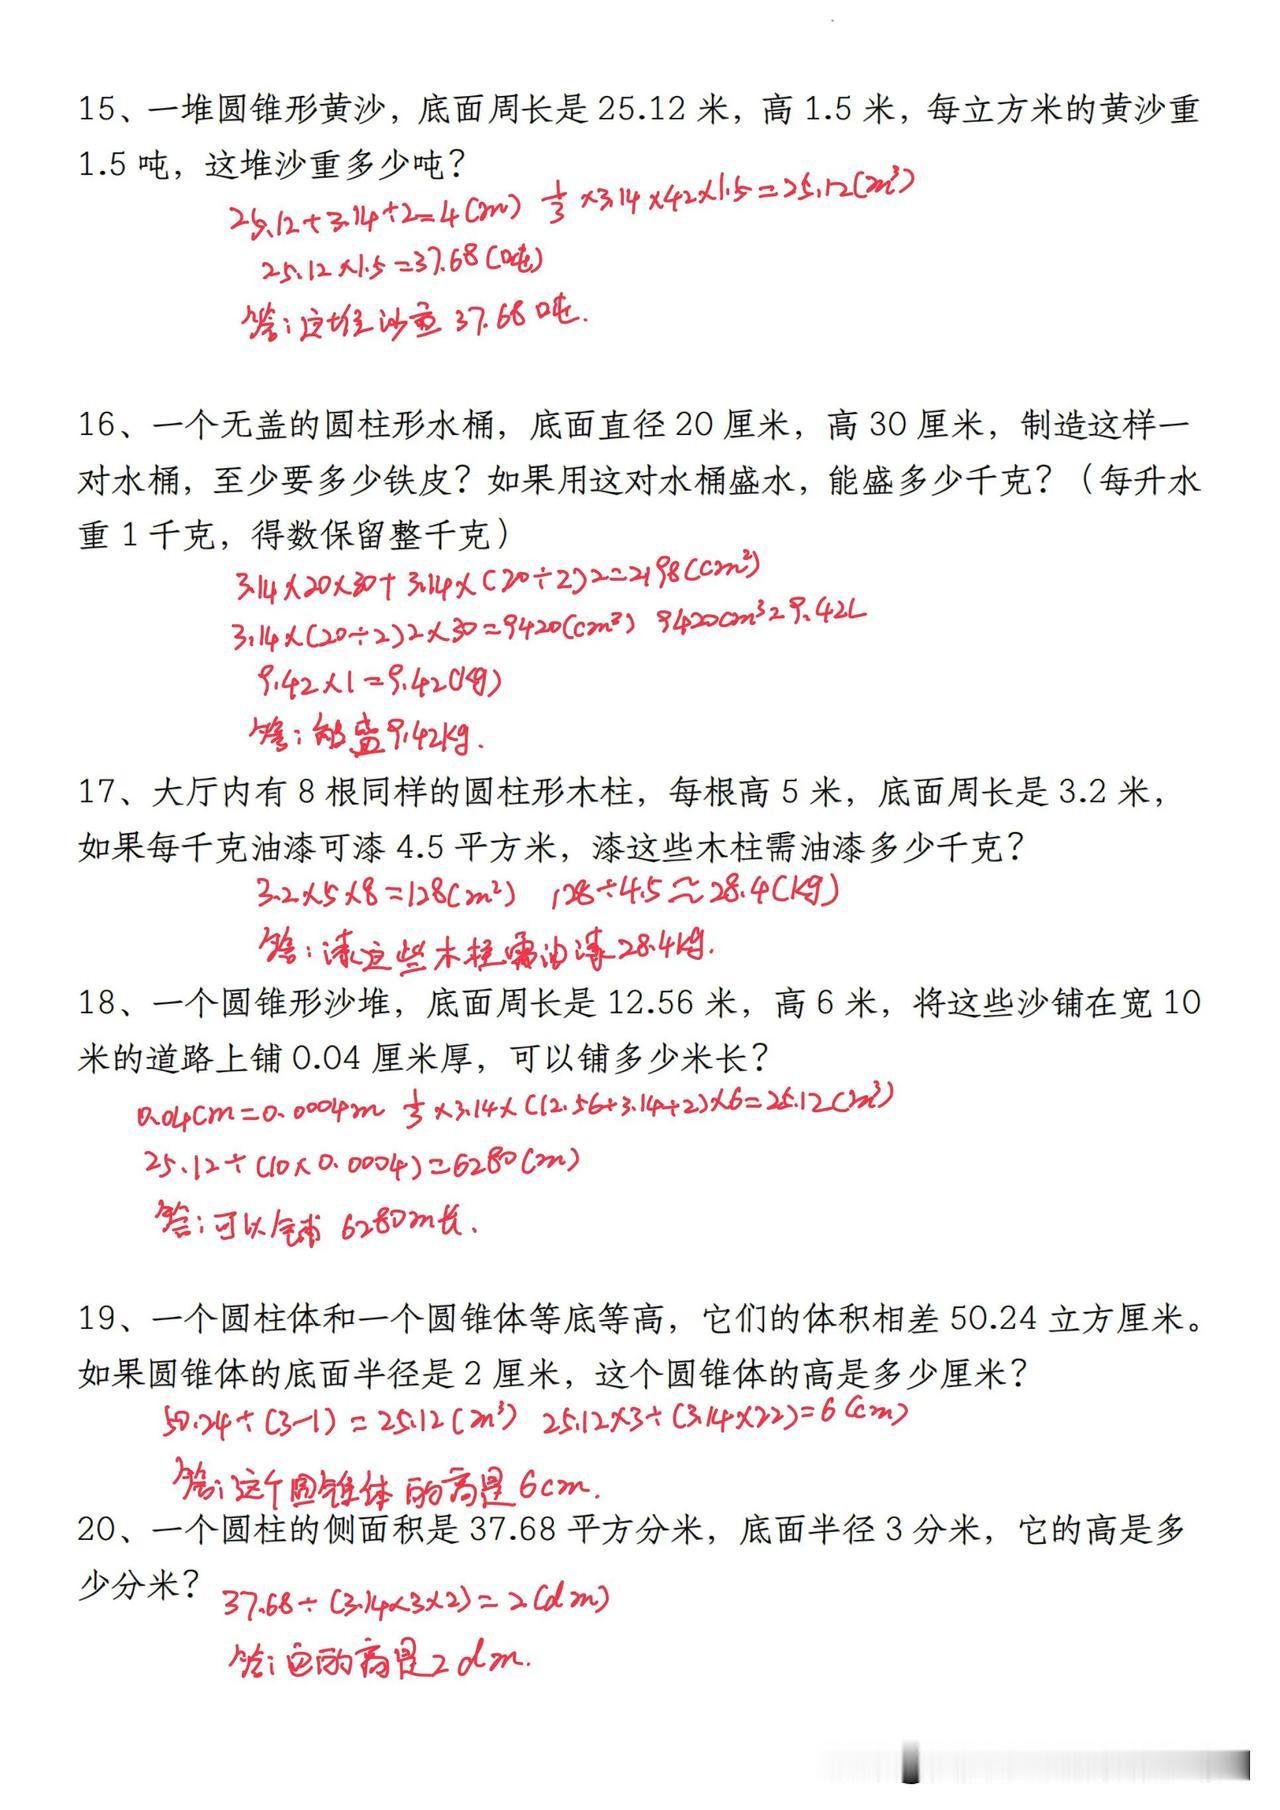 15、一堆圆锥形黄沙，底面周长是 25.12 米，高 1.5 米，每立方米的黄沙重
1.5 吨，这堆沙重多少吨？
25.12÷3.14÷2=4(m) 1/3×3.14×42×1.5=25.12(m³)
25.12×1.5=37.68(吨)
答：这堆沙重 37.68吨.
16、一个无盖的圆柱形水桶，底面直径 20 厘米，高 30 厘米，制造这样一
对水桶，至少要多少铁皮？如果用这对水桶盛水，能盛多少千克？（每升水
重 1 千克，得数保留整千克）
3.14×20×30+3.14×(20÷2)2=2198(cm²)
3.14×(20÷2)2×30=9420(cm³) 9420cm³=9.42L
9.42×1=9.42(kg)
答：能盛9.42kg.
17、大厅内有 8 根同样的圆柱形木柱，每根高 5 米，底面周长是 3.2 米，
如果每千克油漆可漆 4.5 平方米，漆这些木柱需油漆多少千克？
3.2×5×8=128(m²) 128÷4.5≈28.4(kg)
答：漆这些木柱需油漆28.4kg.
18、一个圆锥形沙堆，底面周长是 12.56 米，高 6 米，将这些沙铺在宽 10
米的道路上铺 0.04 厘米厚，可以铺多少米长？
0.04cm=0.0004m 1/3×3.14×(12.56÷3.14÷2)×6=25.12(m³)
25.12÷(10×0.0004)=6280(m)
答：可以铺 6280m长.
19、一个圆柱体和一个圆锥体等底等高，它们的体积相差 50.24 立方厘米。
如果圆锥体的底面半径是 2 厘米，这个圆锥体的高是多少厘米？
50.24÷(3-1)=25.12(m³) 25.12×3÷(3.14×22)=6(cm)
答：这个圆锥体的高是6cm.
20、一个圆柱的侧面积是 37.68 平方分米，底面半径 3 分米，它的高是多
少分米？
37.68÷(3.14×3×2)=2(dm)
答：它的高是2dm.